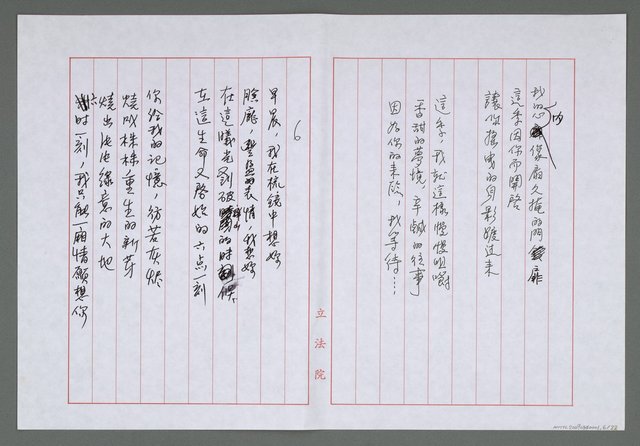 我的心內像扇久掩的門扉
這季因你而開啟
讓你搖曳的身影渡進來
這季,我就這樣慢慢咀嚼
香甜的夢境,辛鹹的往事
因為你的來臨,我等待…
立法院
6
早晨,我在梳鏡中想妳
臉龐,豐盈的表情,我想妳
在這曦光剖破的時候
在這生命又啓始的六点一刻
你給我的記憶,彷若灰燼
燒成株株重生的新芽
燒出泡泡綠意的大地
六時一刻,我只能一廂情願想你